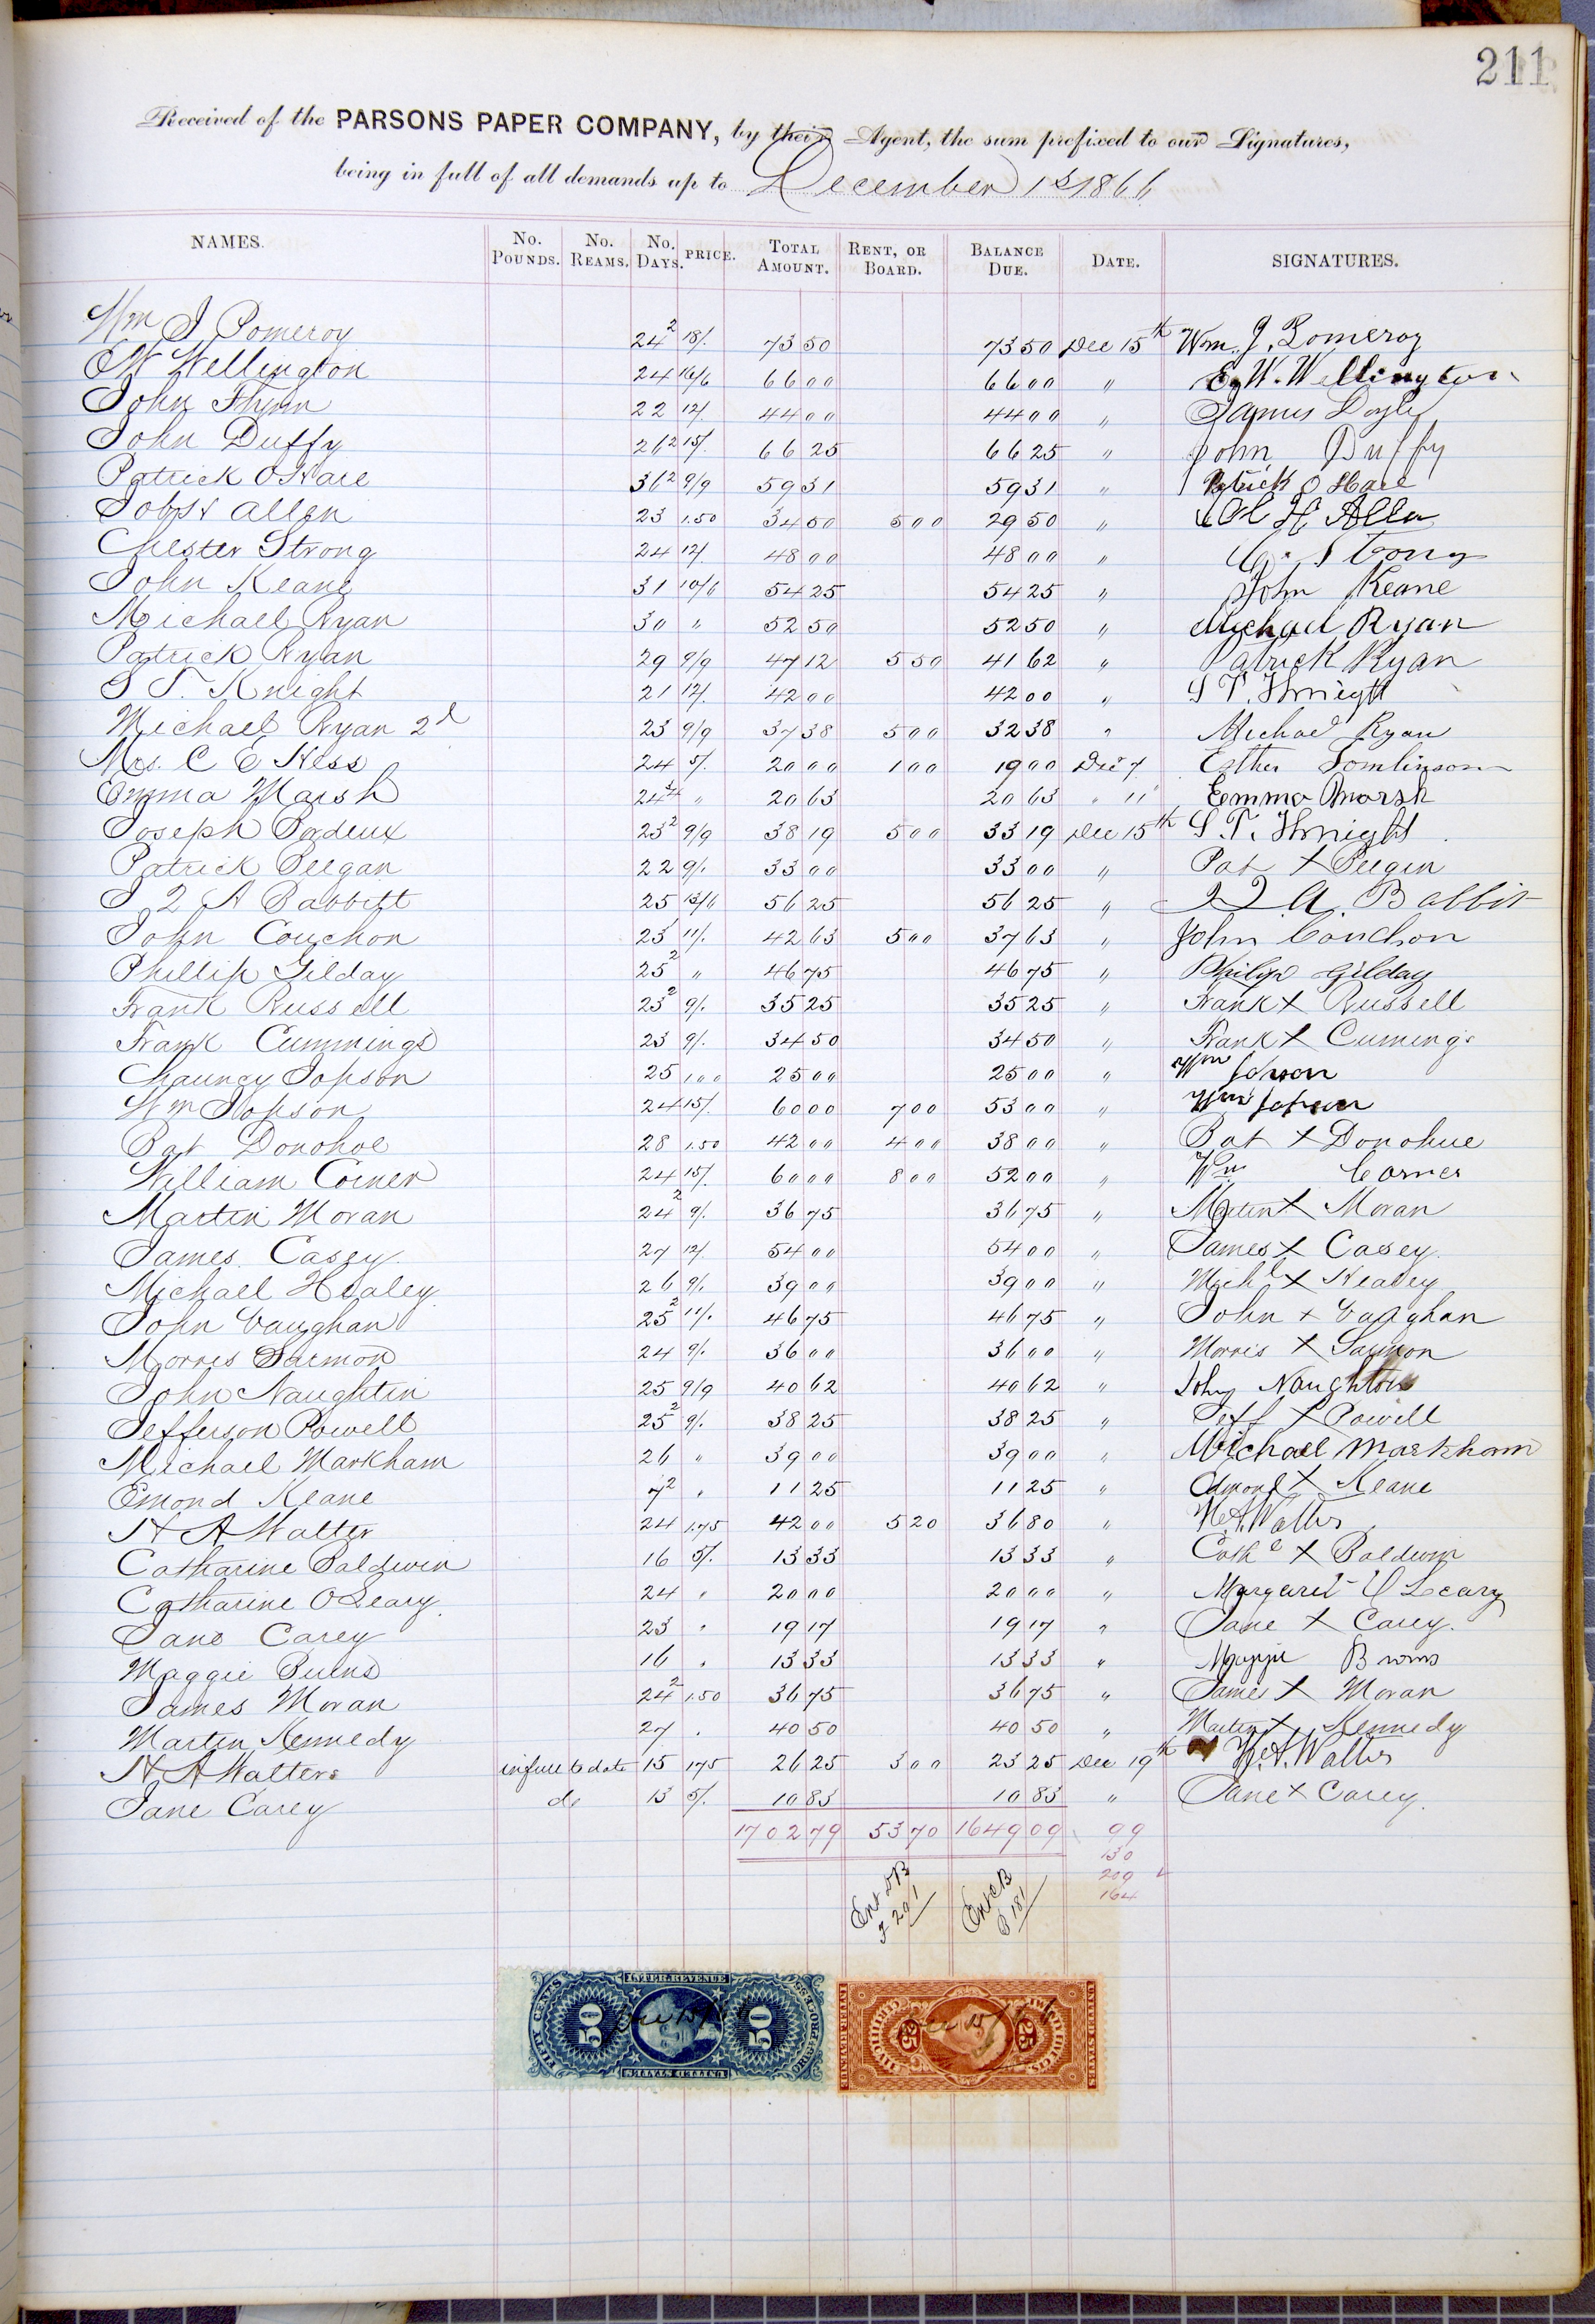 211
Received of the PARSONS PAPER COMPANY, by their Agent, the sum prefixed to our Signatures,
being in full of all demands up to December 1st 1866
NAMES. No. POUNDS. No. REAMS. No. DAYS. PRICE. TOTAL AMOUNT. RENT, OR BOARD. BALANCE DUE. DATE. SIGNATURES.
Wm J Pomeroy 24 2 18/. 73 50 73 50 Dec 15th Wm. J. Pomeroy
E W Wellington 24 16/6 66 00 66 00 " E. W. Wellington
John Flynn 22 12/ 44 00 44 00 " James Doyle
John Duffy 26 2 15/. 66 25 66 25 " John Duffy
Patrick O Hare 36 2 9/9 59 31 59 31 " Patrick O Hare
Allen 23 1.50 34 50 5 00 29 50 "
Chester Strong 24 12/. 48 00 48 00 " C. Strong
John Keane 31 10/6 54 25 54 25 " John Keane
Michael Ryan 30 " 52 50 52 50 " Michael Ryan
Patrick Ryan 29 9/9 47 12 5 50 41 62 " Patrick Ryan
S T. Knight 21 12/. 42 00 42 00 " S T. Knight
Michael Ryan 2d 23 9/9 37 38 5 00 32 38 " Michael Ryan
Mrs. C E Hess 24 5/. 20 00 1 00 19 00 Dec 7 Esther Tomlinson
Emma Marsh 24 3/4 " 20 63 20 63 " 11 Emma Marsh
Joseph 23 2 9/9 38 19 5 00 33 19 Dec 15th S. T. Knight
Patrick Peegan 22 9/. 33 00 33 00 " Pat X Peegin
J Q A Babbitt 25 13/6 56 25 56 25 " J Q. A. Babbit
John Couchon 23 11/. 42 63 5 00 37 63 " John Couchon
Phillip Gilday 25 2 " 46 75 46 75 " Philip Gilday
Frank Russell 23 2 9/. 35 25 35 25 " Frank X Russell
Frank Cummings 23 9/. 34 50 34 50 " Frank X Cumings
Chauncy Jopson 25 1.00 25 00 25 00 " Wm Jopson
Wm Jopson 24 15/. 60 00 7 00 53 00 " Wm Jopson
Pat Donohoe 28 1.50 42 00 4 00 38 00 " Pat X Donohue
William Corner 24 15/. 60 00 8 00 52 00 " Wm Corner
Martin Moran 24 2 9/. 36 75 36 75 " Martin X Moran
James Casey 27 12/. 54 00 54 00 " James X Casey.
Michael Healey 26 9/. 39 00 39 00 " Michl X Healey
John Vaughan 25 2 11/. 46 75 46 75 " John + Vaughan
Morris Sarmon 24 9/. 36 00 36 00 " Morris X Sarmon
John Naughtin 25 9/9 40 62 40 62 " John Naughton
Jefferson Powell 25 2 9/. 38 25 38 25 " Jeff X Powell
Michael Markham 26 " 39 00 39 00 " Michael Markham
Emond Keane 7 2 " 11 25 11 25 " Edmond X Keane
H A Walter 24 1.75 42 00 5 20 36 80 " H. A. Walters
Catharine Baldwin 16 5/. 13 33 13 33 " Cathe X Baldwin
Catharine O Leary. 24 " 20 00 20 00 " Margaret O Leary
Jane Carey 23 " 19 17 19 17 " Jane X Carey.
Maggie Burns 16 " 13 33 13 33 "
James Moran 24 2 1.50 36 75 36 75 " James X Moran
Martin Kennedy 27 " 40 50 40 50 " Martin X Kennedy
H A Walters in full to date 15 1 75 26 25 3 00 23 25 Dec 19th H. A. Walters
Jane Carey do 13 5/. 10 83 10 83 " Jane X Carey.
1702 79 53 70 1649 09 99
130
209
164
Ent DB
F 291
Ent CB
P 181
INTER. REVENUE
FIFTY CENTS
50 50
ORIG. PROCESS
UNITED STATES
Dec 15/
UNITED STATES
INTER. REVENUE
25 25
Dec 15/66